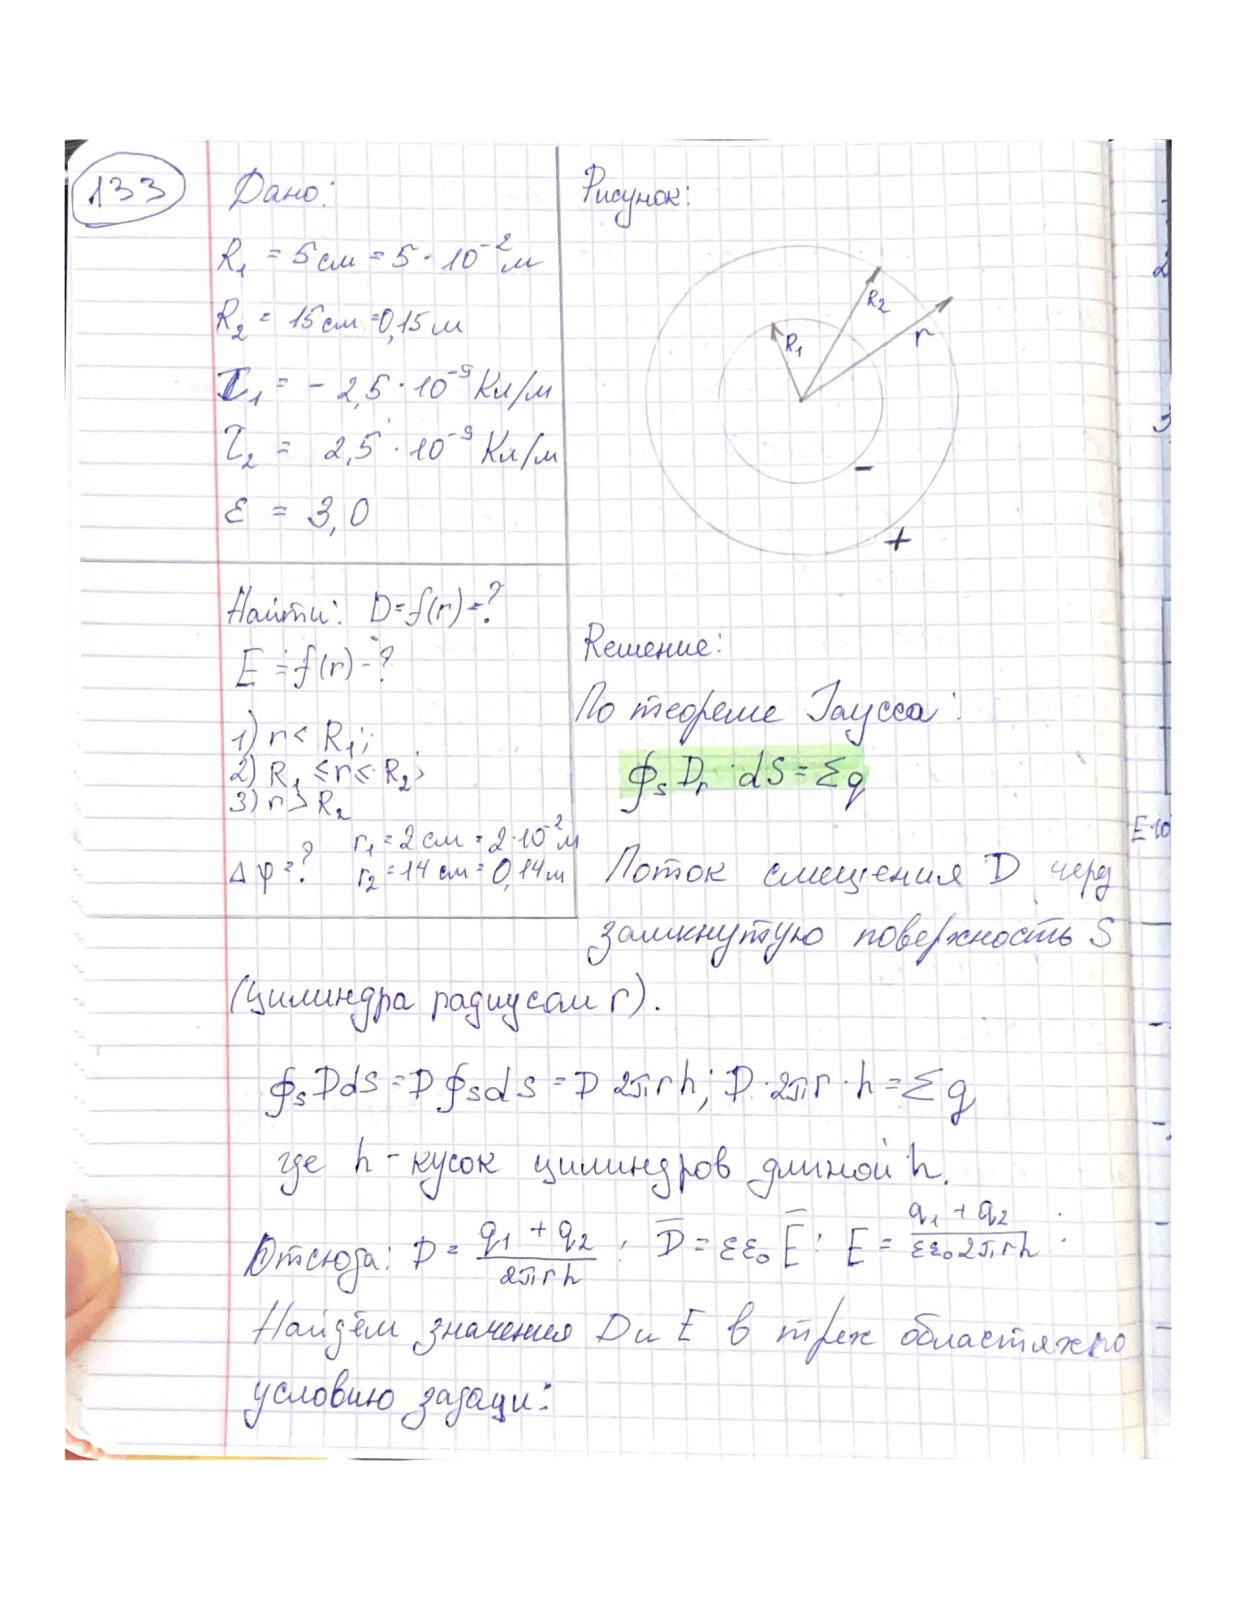 133
Дано:
R₁ = 5 см = 5 · 10⁻² м
R₂ = 15 см = 0,15 м
τ₁ = - 2,5 · 10⁻⁹ Кл/м
τ₂ = 2,5 · 10⁻⁹ Кл/м
ε = 3,0
Найти: D = f(r) - ?
E = f(r) - ?
1) r < R₁;
2) R₁ ≤ r ≤ R₂;
3) r > R₂
Δφ = ? r₁ = 2 см = 2·10⁻² м
r₂ = 14 см = 0,14 м
Рисунок:
R₁
R₂
r
-
+
Решение:
По теореме Гаусса:
∮ₛ Dᵣ · dS = Σq
Поток смещения D через
замкнутую поверхность S
(цилиндра радиусом r).
∮ₛ DdS = D ∮ₛ dS = D 2πrh; D · 2πr · h = Σq
где h - кусок цилиндров длиной h.
Отсюда: D = (q₁ + q₂)/(2πrh); D̅ = εε₀ E̅; E = (q₁ + q₂)/(εε₀2πrh);
Найдём значения D и E в трех областях по
условию задачи:
2
3
E·10